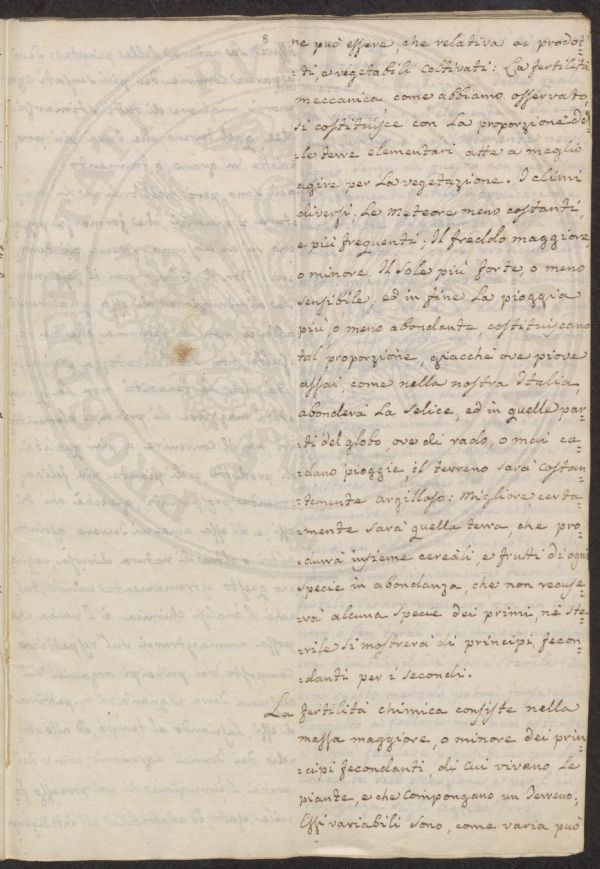 8
ne può essere, che relativa ai prodot-
-ti, e vegetabili coltivati: La fertilità
meccanica come abbiamo osservato,
si costituisce con la proporzione del-
-le terre elementari atte a meglio
agire per la vegetazione. I climi
diversi, Le meteore meno costanti,
e più frequenti, Il freddo maggiore,
o minore, Il Sole più forte, o meno
sensibile, ed in fine la pioggia
più, o meno abondante costituiscano
tal proporzione, giacchè ove piove
assai, come nella nostra Italia,
abonderà la Selice, ed in quelle par-
-ti del globo, ove di rado, o mai ca-
-dano pioggie, il terreno sarà costan-
-temente argilloso: Migliore certa-
-mente sarà quella terra, che pro-
-durrà insieme cereali, e frutti di ogni
specie in abondanza, che non recuse-
-rà alcuna specie dei primi, nè ste-
-rile si mostrerà di principj fecon-
-danti per i secondi.
La fertilità chimica consiste nella
massa maggiore, o minore dei prin-
-cipj fecondanti, di cui viveno le
piante, e che compongano un Terreno;
Essi variabili sono, come varia può